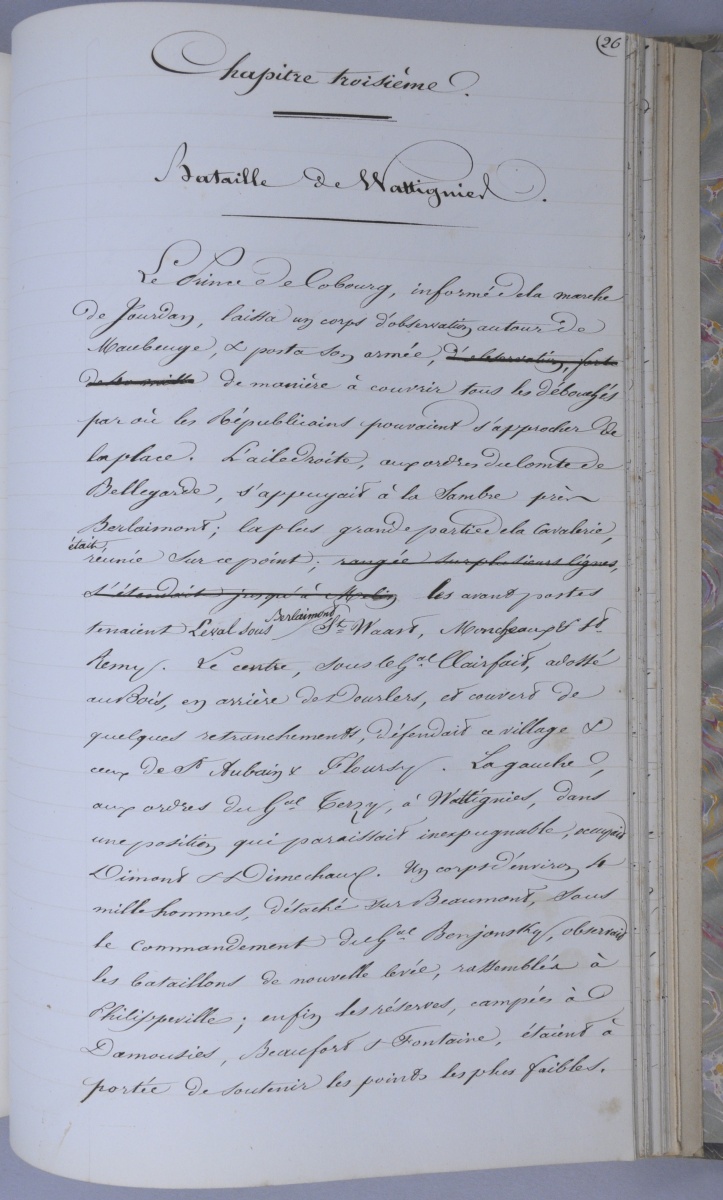 (26
Chapitre troisième.
Bataille de Wattignies.
Le Prince de Cobourg, informé de la marche
de Jourdan, laissa un corps d'observation autour de
Maubeuge, & posta son armée, d'observation, forte
de manière à couvrir tous les débouchés
par où les Républicains pouvaient s'approcher de
la place. L'aile droite, aux ordres du Comte de
Bellegarde, s'appuyait à la Sambre près
Berlaimont; la plus grande partie de la Cavalerie,
était
réunie sur ce point; rangée sur plusieurs lignes,
s'étendait jusqu'à les avant postes
Berlaimont
tenaient Leval sous St. Waast, Monceaux & St
Remy. Le centre, sous le Gal Clairfait, adossé
au Bois, en arrière de Dourlers, et couvert de
quelques retranchements, défendait ce village &
ceux de St Aubain & Floursy. La gauche,
aux ordres du Gal Terzy, à Wattignies, dans
une position qui paraissait inexpugnable, occupait
Dimont & Dimechaux. Un corps d'environ 4
mille hommes, détaché sur Beaumont, sous
le commandement du Gal Benjonsky, observait
les bataillons de nouvelle levée, rassemblés à
Philippeville; enfin les réserves, campées à
Damousies, Beaufort & Fontaine, étaient à
portée de soutenir les points les plus faibles.